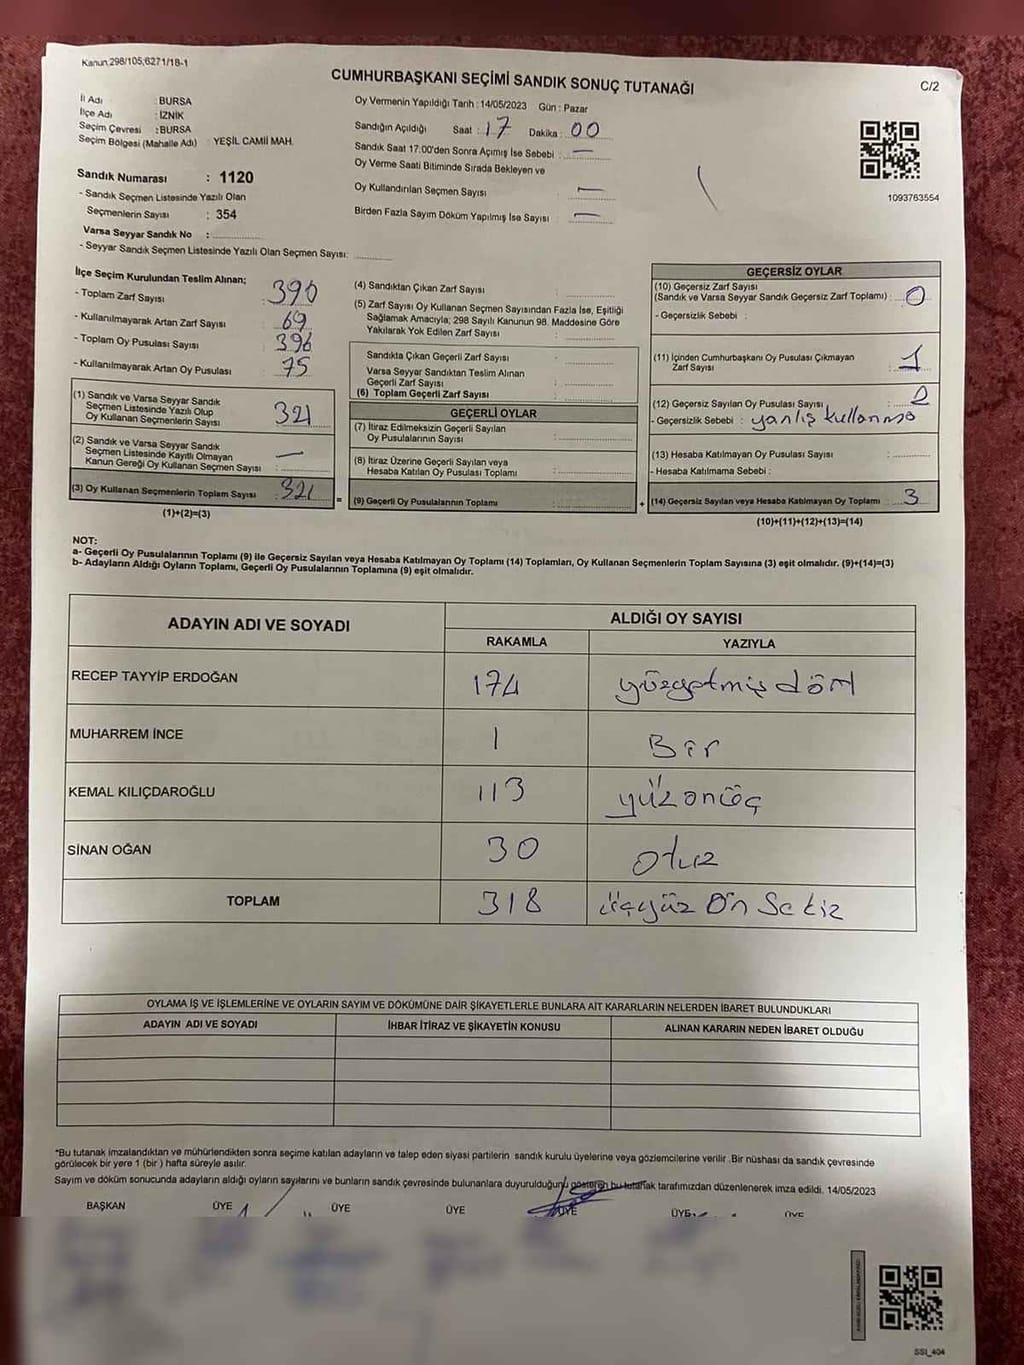 Kanun,298/105,6271/18-1
CUMHURBAŞKANI SEÇİMİ SANDIK SONUÇ TUTANAĞI
C/2
İl Adı : BURSA
İlçe Adı : İZNİK
Seçim Çevresi : BURSA
Seçim Bölgesi (Mahalle Adı) : YEŞİL CAMİİ MAH.
Oy Vermenin Yapıldığı Tarih : 14/05/2023 Gün : Pazar
Sandığın Açıldığı Saat : 17 Dakika : 00
Sandık Saat 17:00'den Sonra Açımış İse Sebebi : —
Oy Verme Saati Bitiminde Sırada Bekleyen ve
Oy Kullandırılan Seçmen Sayısı —
Birden Fazla Sayım Döküm Yapılmış İse Sayısı —
1093763554
Sandık Numarası : 1120
- Sandık Seçmen Listesinde Yazılı Olan
Seçmenlerin Sayısı : 354
Varsa Seyyar Sandık No :
- Seyyar Sandık Seçmen Listesinde Yazılı Olan Seçmen Sayısı:
İlçe Seçim Kurulundan Teslim Alınan;
- Toplam Zarf Sayısı : 390
- Kullanılmayarak Artan Zarf Sayısı : 69
- Toplam Oy Pusulası Sayısı : 396
- Kullanılmayarak Artan Oy Pusulası : 75
(1) Sandık ve Varsa Seyyar Sandık
Seçmen Listesinde Yazılı Olup
Oy Kullanan Seçmenlerin Sayısı : 321
(2) Sandık ve Varsa Seyyar Sandık
Seçmen Listesinde Kayıtlı Olmayan
Kanun Gereği Oy Kullanan Seçmen Sayısı : —
(3) Oy Kullanan Seçmenlerin Toplam Sayısı : 321 =
(1)+(2)=(3)
(4) Sandıktan Çıkan Zarf Sayısı :
(5) Zarf Sayısı Oy Kullanan Seçmen Sayısından Fazla İse, Eşitliği
Sağlamak Amacıyla; 298 Sayılı Kanunun 98. Maddesine Göre
Yakılarak Yok Edilen Zarf Sayısı :
Sandıkta Çıkan Geçerli Zarf Sayısı :
Varsa Seyyar Sandıktan Teslim Alınan
Geçerli Zarf Sayısı :
(6) Toplam Geçerli Zarf Sayısı :
GEÇERLİ OYLAR
(7) İtiraz Edilmeksizin Geçerli Sayılan
Oy Pusulalarının Sayısı :
(8) İtiraz Üzerine Geçerli Sayılan veya
Hesaba Katılan Oy Pusulası Toplamı :
(9) Geçerli Oy Pusulalarının Toplamı : +
GEÇERSİZ OYLAR
(10) Geçersiz Zarf Sayısı
(Sandık ve Varsa Seyyar Sandık Geçersiz Zarf Toplamı) : 0
- Geçersizlik Sebebi :
(11) İçinden Cumhurbaşkanı Oy Pusulası Çıkmayan
Zarf Sayısı : 1
(12) Geçersiz Sayılan Oy Pusulası Sayısı : 2
- Geçersizlik Sebebi : yanlış kullanma
(13) Hesaba Katılmayan Oy Pusulası Sayısı :
- Hesaba Katılmama Sebebi :
(14) Geçersiz Sayılan veya Hesaba Katılmayan Oy Toplamı : 3
(10)+(11)+(12)+(13)=(14)
NOT:
a- Geçerli Oy Pusulalarının Toplamı (9) ile Geçersiz Sayılan veya Hesaba Katılmayan Oy Toplamı (14) Toplamları, Oy Kullanan Seçmenlerin Toplam Sayısına (3) eşit olmalıdır. (9)+(14)=(3)
b- Adayların Aldığı Oyların Toplamı, Geçerli Oy Pusulalarının Toplamına (9) eşit olmalıdır.
ADAYIN ADI VE SOYADI
ALDIĞI OY SAYISI
RAKAMLA YAZIYLA
RECEP TAYYİP ERDOĞAN 174 yüzyetmiş dört
MUHARREM İNCE 1 Bir
KEMAL KILIÇDAROĞLU 113 yüzonüç
SİNAN OĞAN 30 Otuz
TOPLAM 318 üçyüz On Sekiz
OYLAMA İŞ VE İŞLEMLERİNE VE OYLARIN SAYIM VE DÖKÜMÜNE DAİR ŞİKAYETLERLE BUNLARA AİT KARARLARIN NELERDEN İBARET BULUNDUKLARI
ADAYIN ADI VE SOYADI İHBAR İTİRAZ VE ŞİKAYETİN KONUSU ALINAN KARARIN NEDEN İBARET OLDUĞU
*Bu tutanak imzalandıktan ve mühürlendikten sonra seçime katılan adayların ve talep eden siyasi partilerin sandık kurulu üyelerine veya gözlemcilerine verilir. Bir nüshası da sandık çevresinde
görülecek bir yere 1 (bir ) hafta süreyle asılır.
Sayım ve döküm sonucunda adayların aldığı oyların sayılarını ve bunların sandık çevresinde bulunanlara duyurulduğunu gösteren bu tutanak tarafımızdan düzenlenerek imza edildi. 14/05/2023
BAŞKAN ÜYE ÜYE ÜYE ÜYE ÜYE ÜYE
SSI_404